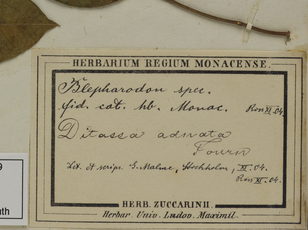 HERBARIUM REGIUM MONACENSE.
Blepharodon spec.
fid. cat. hb. Monac. Rev XI.04.
Ditassa adnata
Fourn
Det. et scrips. G. Malme, Stockholm, XI.04.
Rev XI.04.
HERB. ZUCCARINII.
Herbar. Univ. Ludov. Maximil.
9
nth